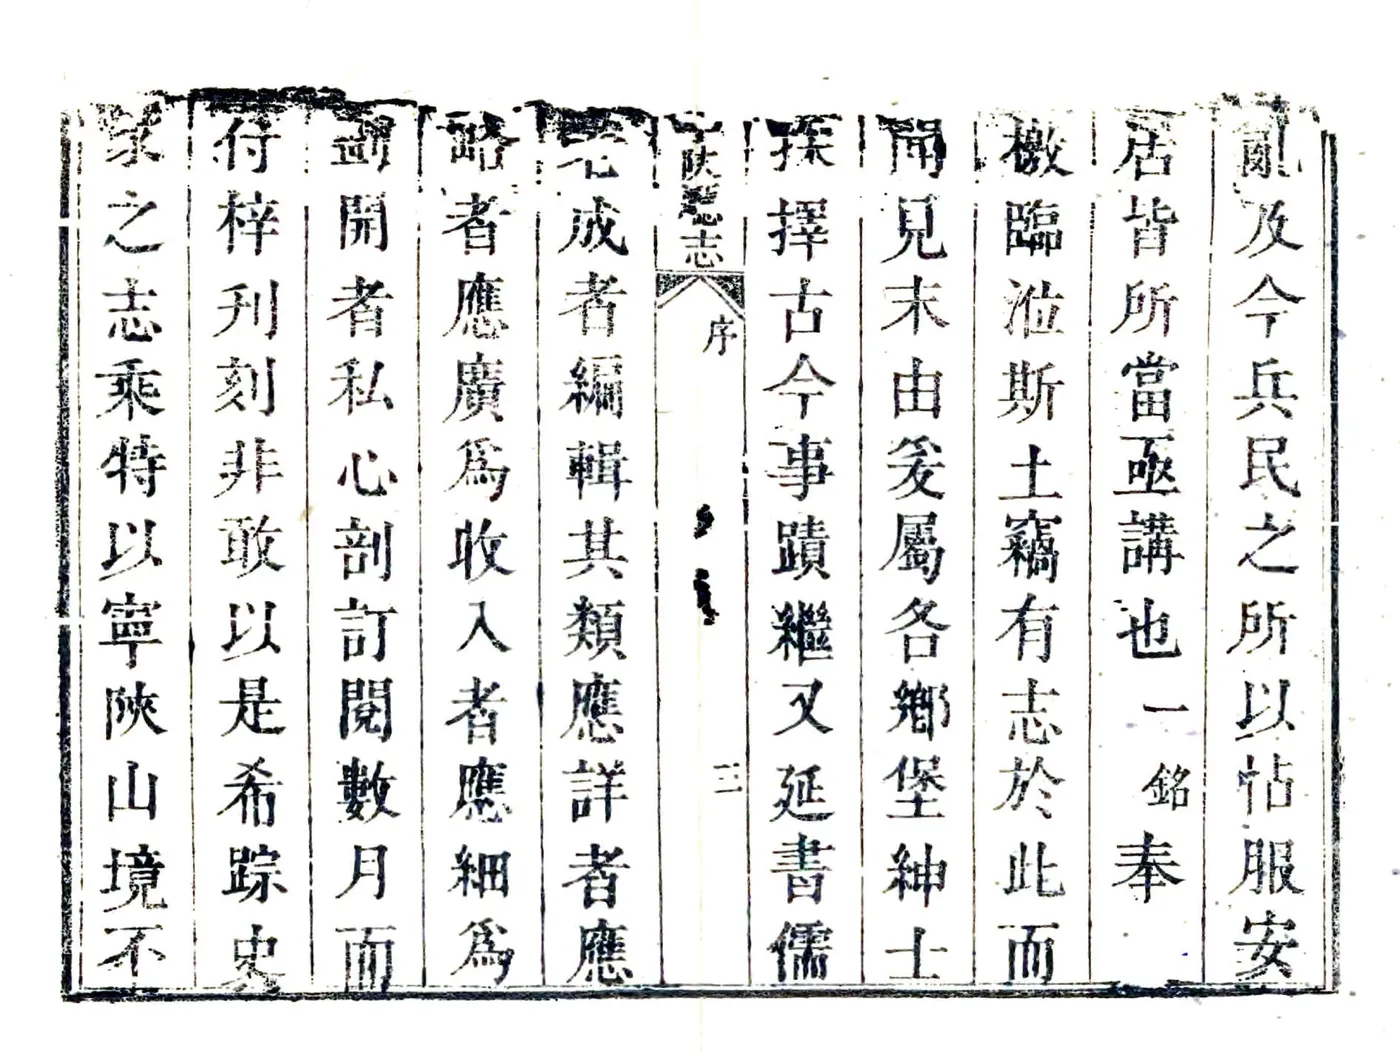 亂及今兵民之所以帖服安
居皆所當亟講也一銘奉
檄臨涖斯土竊有志於此而
聞見末由爰屬各鄉堡紳士
採擇古今事蹟繼又延書儒
老成者編輯其類應詳者應
略者應廣為收入者應細為
劃開者私心剖訂閱數月而
付梓刊刻非敢以是希踪史
家之志乘特以寧陝山境不
寧陝廳志
序
二